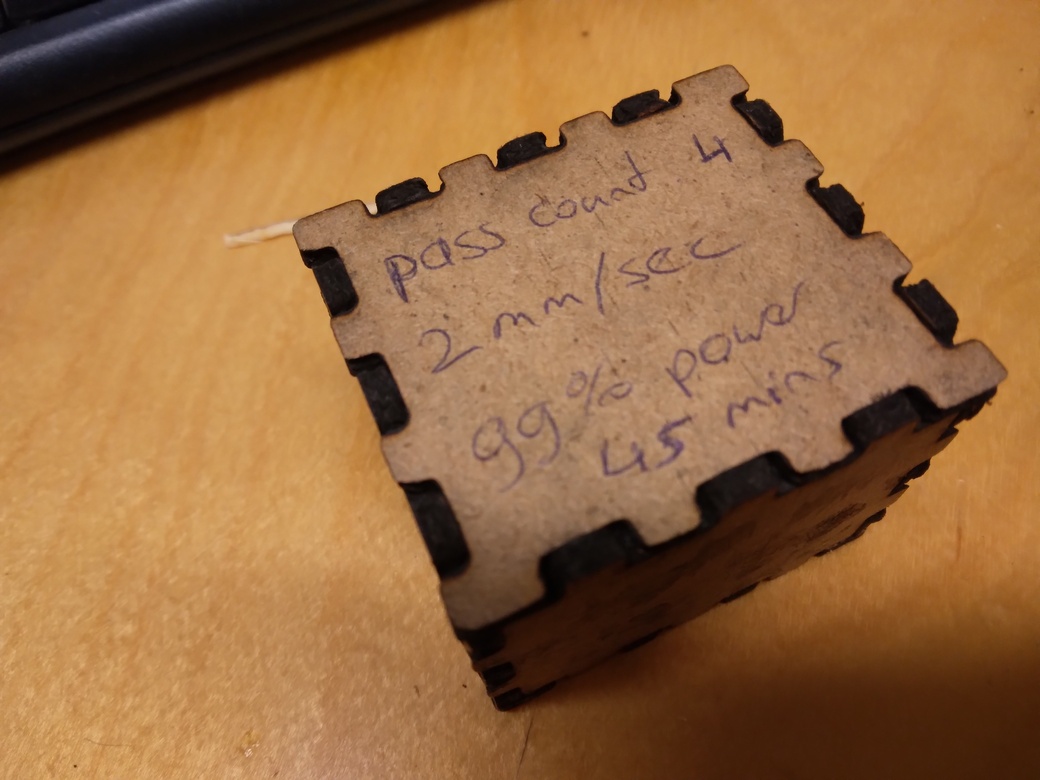 pass count 4
2 mm/sec
99% power
45 mins